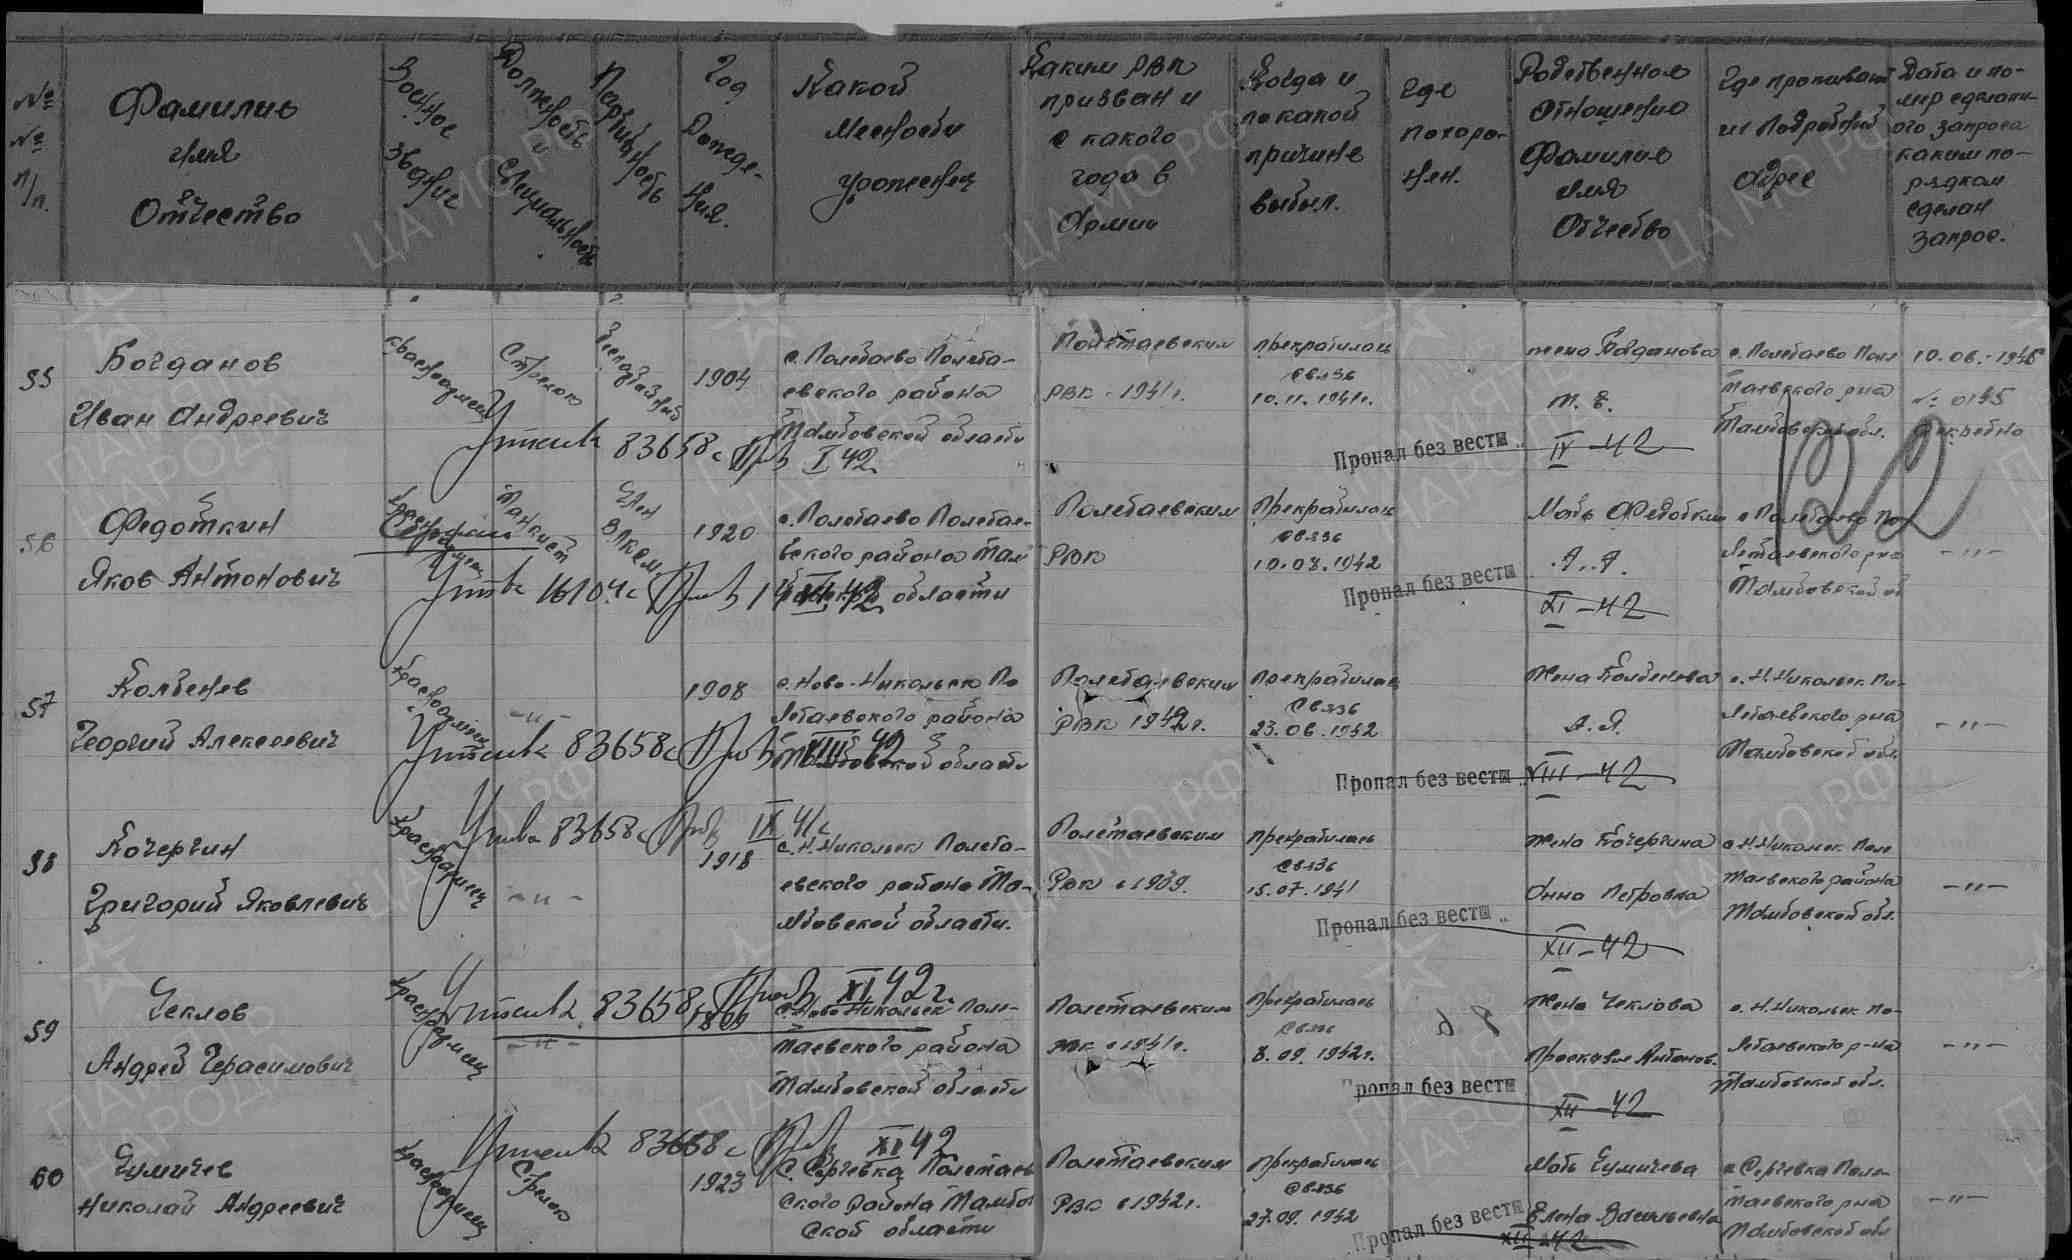 № № п/п.
Фамилию имя Отчество
Военное звание
Должность и специальность
Партийность
Год Рожде-ния.
Какой Местности уроженец
Каким РВК призван и с какого года в Армии
Когда и по какой причине выбыл.
Где похоро-нен.
Родственное отношение Фамилию имя Отчество
Где проживают их Подробный адрес
Дата и но-мер сделанн-ого запроса каким по-рядком сделан запрос.
55
Богданов
Иван Андреевич
красноармеец
Стрелок
1904
с. Полетаево Полета-
евского района
Тамбовской области
83658с I 42
Полетаевским
РВК - 1941г.
прекратилась
связь
10.11.1941г.
Пропал без вести
IV-42
жена Богданова
Т. Е.
с. Полетаево Пол
таевского р-на
Тамбовской обл.
10.06.-1946
№ 0195
56
Федоткин
Яков Антонович
Танкист
Член ВЛКСМ
1920
с. Полетаево Полетае-
вского района Там
области
16104с 42
Полетаевским
РВК
Прекратилась
связь
10.08.1942
Пропал без вести
XI-42
Мать Федоткин
А. А.
с Полетаево По-
летаевского р-на
Тамбовской об
-"-
57
Колбенев
Георгий Алексеевич
Красноармеец
-"-
1908
с. Ново-Никольск По
летаевского района
Тамбовской области
83658с VIII 42
Полетаевским
РВК 1942г.
прекратилась
связь
23.06.1942
Пропал без вести
VIII-42
Жена Колбенева
А. Я.
с. Н.Никольск По-
летаевского р-на
Тамбовской обл.
-"-
58
Кочергин
Григорий Яковлевич
Красноармеец
-"-
83658с IX 41г
1918
с. Н.Никольск Полета-
евского района Та-
мбовской области.
Полетаевским
РВК с 1939.
прекратилась
связь
15.07.1941
Пропал без вести
XII-42
жена Кочергина
Анна Петровна
с Н.Никольск Поле
таевского района
Тамбовской обл.
-"-
59
Чеклов
Андрей Герасимович
Красноармеец
-"-
83658с XI 42г.
с. Ново Никольск Поле-
таевского района
Тамбовской области
Полетаевским
РВК с 1941г.
Прекратилась
связь
8.09.1942г.
Пропал без вести
XII-42
Жена Чеклова
Просковья Антонов.
с. Н.Никольск По-
летаевского р-на
Тамбовской обл.
-"-
60
Чумичев
Николай Андреевич
Красноармеец
Стрелок
83658с XI 42
1923
с. Сергевка Полетаев
ского района Тамбов
ской области
Полетаевским
РВК с 1942г.
прекратилась
связь
27.09.1942
Пропал без вести
XII 42
Мать Чумичева
Елена Васильевна
с Сергевка Поле-
таевского р-на
Тамбовской обл
-"-
ЦА МО РФ
ПАМЯТЬ НАРОДА